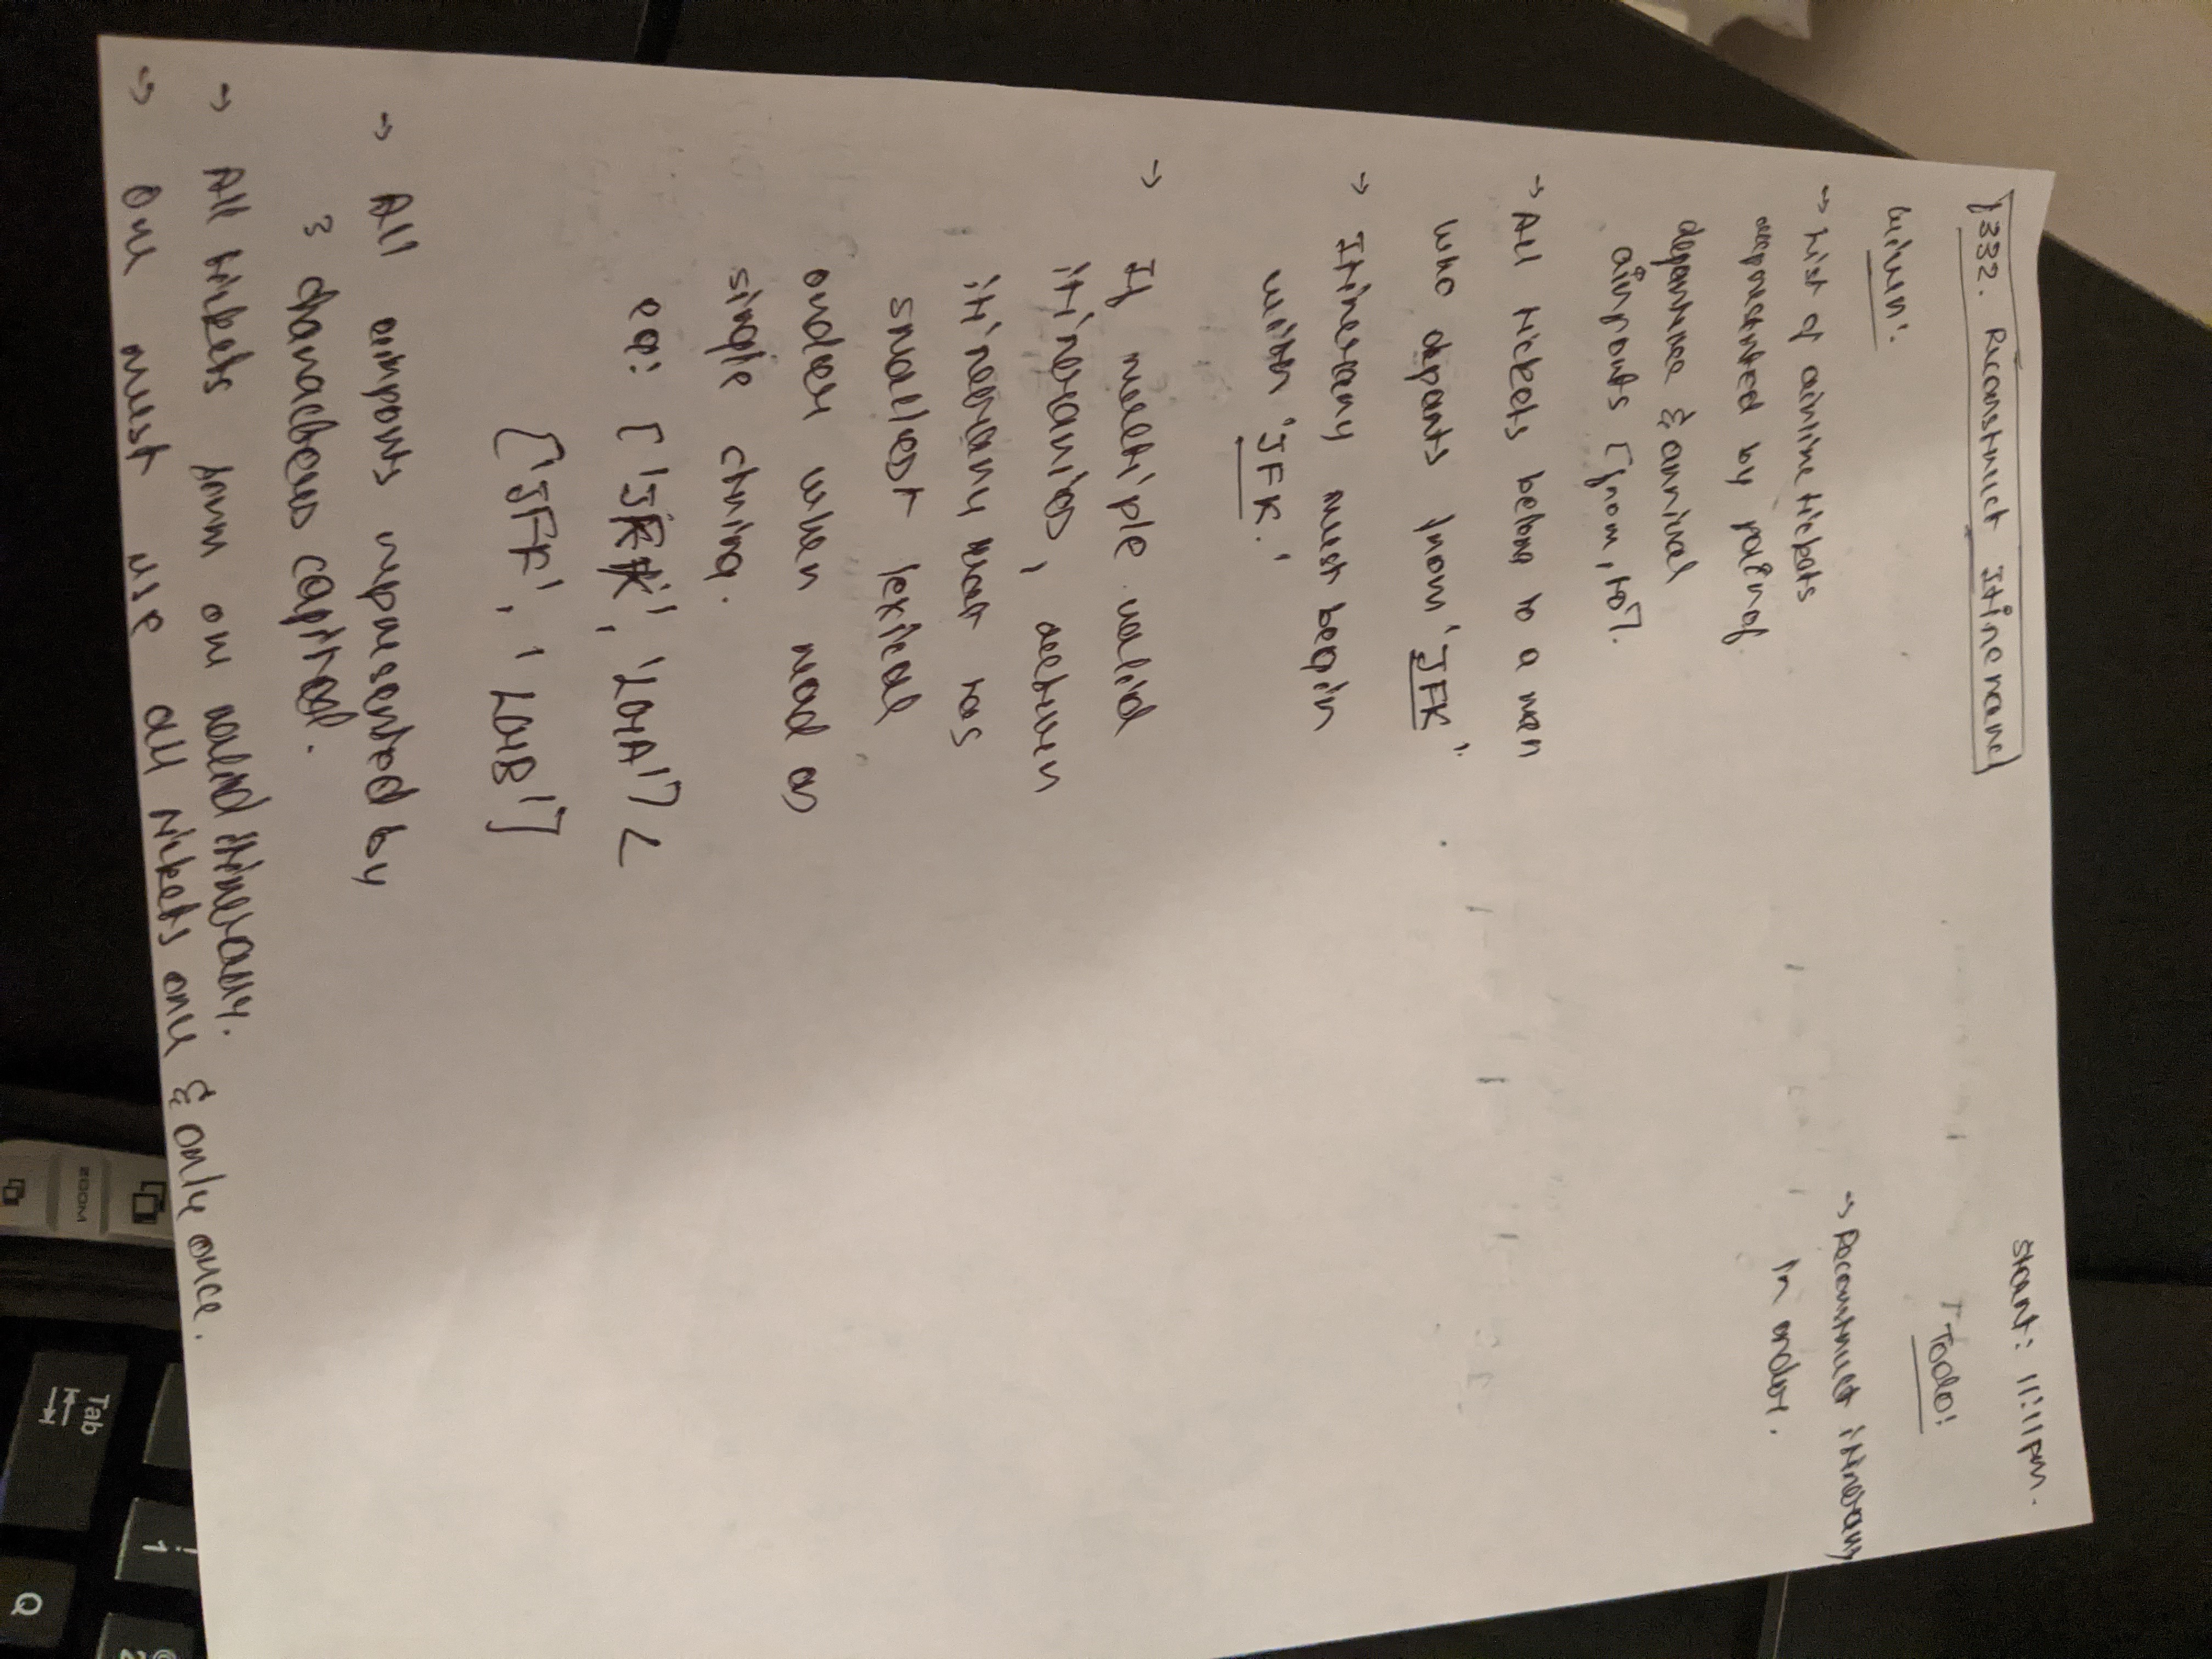 332. Reconstruct Itinerary
Start: 11:11pm.
Given:
Todo:
→ List of airline tickets
represented by pair of
departure & arrival
airports [from, to].
→ Reconstruct itinerary
in order.
→ All tickets belong to a man
who departs from 'JFK'.
→ Itinerary must begin
with 'JFK.'
→ If multiple valid
itineraries, return
itinerary that has
smallest lexical
order when read as
single string.
eg: ['JFK', 'LGA'] <
['JFK', 'LGB']
→ All airports represented by
3 characters capital.
→ All tickets form one valid itinerary.
→ One must use all tickets once & only once.
ZOOM
Tab
!
1
Q
2